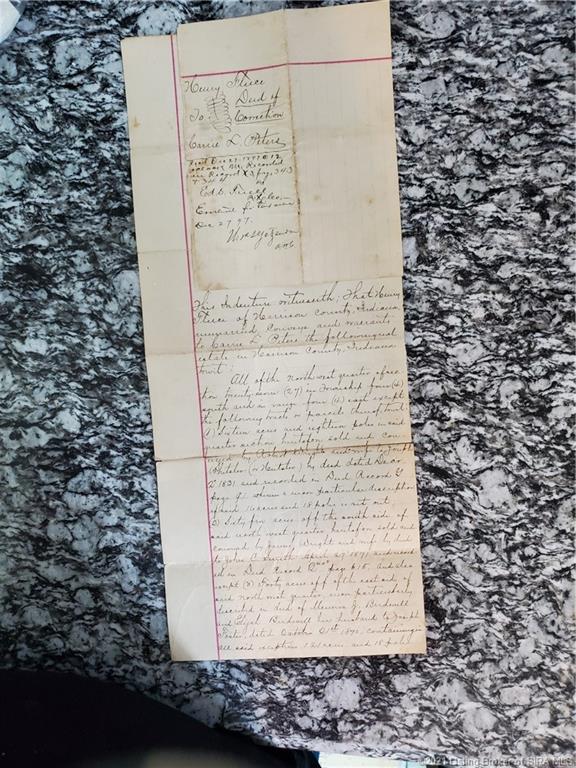 Henry Fleece
To Deed of
Correction
Carrie L. Peters
Recd Dec 27 1897 @ 12
o'clock M. Recorded
in Record X 3 page 343
Ed. S.
Recorder
for taxation
Dec 27 97.
This Indenture witnesseth, That Henry
Fleece of Harrison county, Indiana,
unmarried, conveys and warrants
to Carrie L. Peters the following real
estate in Harrison County, Indiana
towit:
All of the north west quarter of sec
tion twenty-seven (27) in Township four (4)
south and in range four (4) east except
the following tracts or parcels thereof towit:
(1) Sixteen acres and eighteen poles in said
quarter section heretofore sold and con
veyed by Wright and wife to Joseph
by deed dated
1831 and recorded in Deed Record
page 92 where a more particular description
of said 16 acres and 18 poles is set out
(2) Sixty five acres off the south side of
said north west quarter heretofore sold and
conveyed by James J. Wright and wife by deed
to John April 27 1871 and record
ed in Deed Record page 615. And also
except (3) Forty acres off of the east side of
said north west quarter, more particularly
described in deed of J. Birdwell
and Elijah Birdwell her husband to Joseph
dated October 21st 1890, containing in
all said exceptions 121 acres and 18 poles
©2021 Listing Broker of SIRA MLS